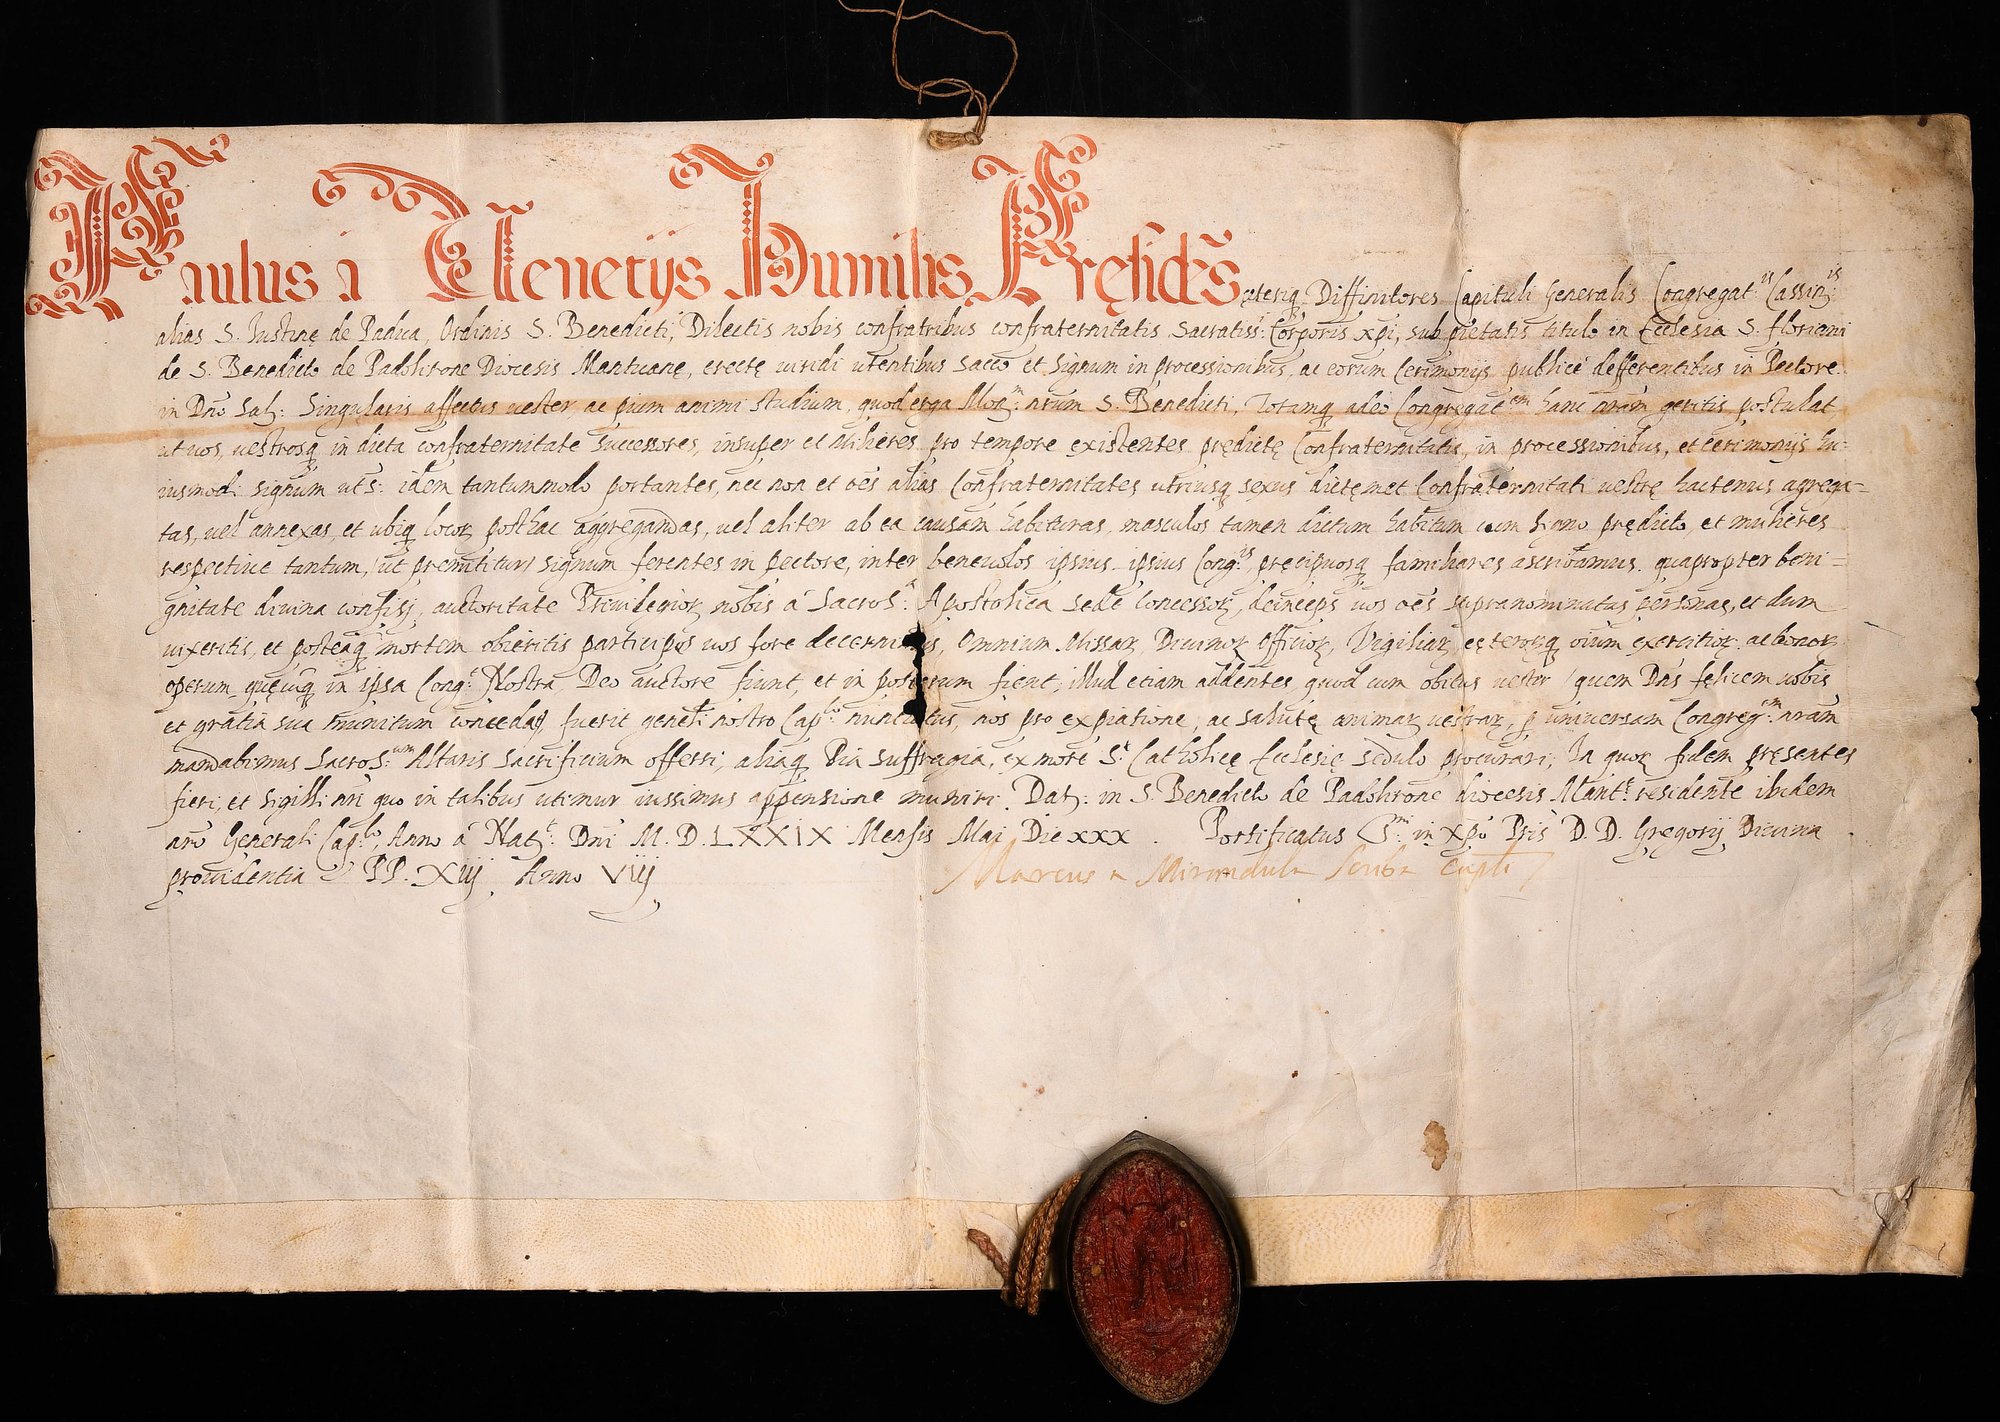 Paulus a Venetijs Humilis Pręsidẽs cęteriq; Diffinitores Capituli Generalis Congregat:ⁱˢ Cassin:ⁱˢ
alias S. Iustinę de Padua, Ordinis S. Benedicti, Dilectis nobis confratribus confraternitatis sacratiss:ⁱ Corporis xp̃i, sub pietatis titulo in Ecclesia S. Floriani
de S. Benedicto de Padolirone Diocesis Mantuanę, erectę viridi utentibus sacco et signum in processionibus, ac eorum Cerimonijs publicè defferentibus in Pectore
in Dño Sal: Singularis affectus uester, ac pium animi studium, quod erga Mon:ᵐ nr̃um S. Benedicti, Totamq; adeò Congregãe:ᵉᵐ hanc nr̃am geritis postulat
ut uos, uestrosq; in dicta confraternitate successores, insuper et mulieres pro tempore existentes prędictę Confraternitatis, in processionibus, et cerimonijs hu-
iusmodi signum ut s: idem tantummodo portantes, nec non et oẽs alias Confraternitates utriusq; sexus dictęmet Confraternitati uestrę hactenus agrega-
tas, uel annexas, et ubiq; locoꝝ posthac aggregandas, uel aliter ab ea causam habituras, masculos tamen dictum habitum cum signo prędicto, et mulieres
respectiue tantum, /ut premittitur/ signum ferentes in pectore, inter beneuolos ipsius ipsius Cong:ⁱˢ pręcipuosq; familiares ascribamus. quapropter beni-
gnitate diuina confisi, auctoritate Priuilegioꝝ nobis à Sacros:ᵃ Apostolica sede concessoꝝ, deinceps uos oẽs supranominatas personas, et dum
uixeritis, et posteaq; mortem obieritis participes uos fore decernimus, Omnium Missaꝝ, Diuinoꝝ Officioꝝ, Vigiliaꝝ, cęteroꝝq; oĩum exercitioꝝ ac bonoꝝ
operum quęcũq; in ipsa Cong:ᵉ Nostra, Deo auctore fiunt, et in posterum fient, illud etiam addentes, quod cum obitus uester /quem Dñs fęlicem uobis
et gratia sua munitum concedat/ fuerit gener̃li nostro Cap:ˡᵒ nuntiatus, nos pro expiatione, ac salutę animaꝝ uestraꝝ, ꝑ uniuersam Congreg:ᵐ nr̃am
mandabimus Sacros:ᵘᵐ Altaris sacrificium offerri, aliaq; Pia suffragia, ex more S:ᵗ Catholicę Ecclesię sedulo procurari, In quoꝝ fidem pręsentes
fieri, et sigilli nr̃i quo in talibus utimur iussimus appensione muniri. Dat: in S. Benedicto de Padolirone diocesis Mant:ᵉ residente ibidem
nr̃o Generali Cap:ˡᵒ, Anno à Nat:ᵉ Dñi M.D.LXXIX Mensis Mai Die xxx. Portificatus S:ᵐⁱ in xp̃o Pr̃is D.D. Gręgorij Diuina
prouidentia PP. Xiij Anno Viij
Marcus a Mirandula scriba Capli